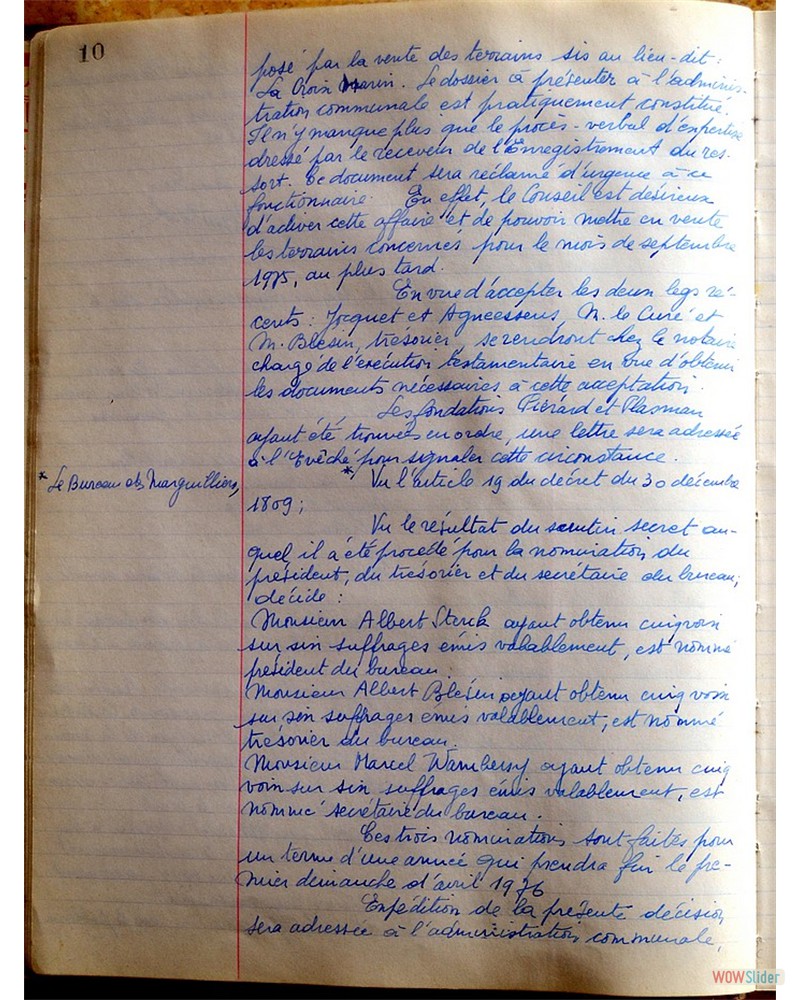 10
posé par la vente des terrains sis au lieu-dit :
La Croix Marin. Le dossier à présenter à l'adminis-
tration communale est pratiquement constitué.
Il n'y manque plus que le procès-verbal d'expertise
dressé par le receveur de l'Enregistrement du res-
sort. Ce document sera réclamé d'urgence à ce
fonctionnaire. En effet, le Conseil est désireux
d'activer cette affaire et de pouvoir mettre en vente
les terrains concernés pour le mois de septembre
1975, au plus tard.
En vue d'accepter les deux legs ré-
cents : Jocquet et Agneessens, M. le Curé et
M. Blésin, trésorier, se rendront chez le notaire
chargé de l'exécution testamentaire en vue d'obtenir
les documents nécessaires à cette acceptation.
Les fondations Piérard et Plasman
ayant été trouvées en ordre, une lettre sera adressée
à l'Evêché pour signaler cette circonstance.
* Le Bureau des Marguilliers,
* Vu l'article 19 du décret du 30 décembre
1809 ;
Vu le résultat du scrutin secret au-
quel il a été procédé pour la nomination du
président, du trésorier et du secrétaire du bureau,
décide :
Monsieur Albert Sterck ayant obtenu cinq voix
sur six suffrages émis valablement, est nommé
président du bureau.
Monsieur Albert Blésin ayant obtenu cinq voix
sur six suffrages émis valablement, est nommé
trésorier du bureau.
Monsieur Marcel Wambersy ayant obtenu cinq
voix sur six suffrages émis valablement, est
nommé secrétaire du bureau.
Ces trois nominations sont faites pour
un terme d'une année qui prendra fin le pre-
mier dimanche d'avril 1976
Expédition de la présente décision
sera adressée à l'administration communale,
WOWSlider